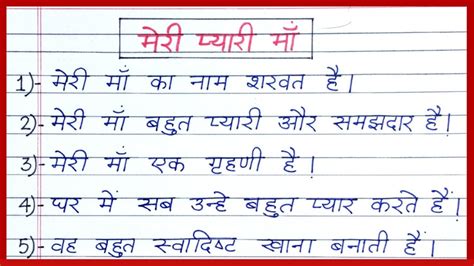 मेरी प्यारी माँ
1)- मेरी माँ का नाम शरवत है।
2)- मेरी माँ बहुत प्यारी और समझदार है।
3)- मेरी माँ एक ग्रहणी है।
4)- घर में सब उन्हे बहुत प्यार करते हैं।
5)- वह बहुत स्वादिष्ट खाना बनाती हैं।